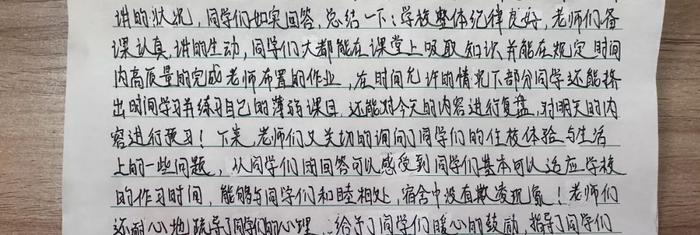 讲的状况，同学们如实回答，总结一下：学校整体纪律良好，老师们备
课认真，讲的生动，同学们大都能在课堂上吸取知识并能在规定时间
内高质量的完成老师布置的作业，在时间允许的情况下部分同学还能挤
出时间学习并练习自己的薄弱课目，还能对今天的内容进行复盘，对明天的内
容进行预习！下来，老师们又关切的询问了同学们的住校体验与生活
上的一些问题，从同学们的回答可以感受到同学们基本可以适应学校
的作习时间，能够与同学们和睦相处，宿舍中没有欺凌现象！老师们
还耐心地疏导了同学们的心理，给予了同学们暖心的鼓励，指导了同学们